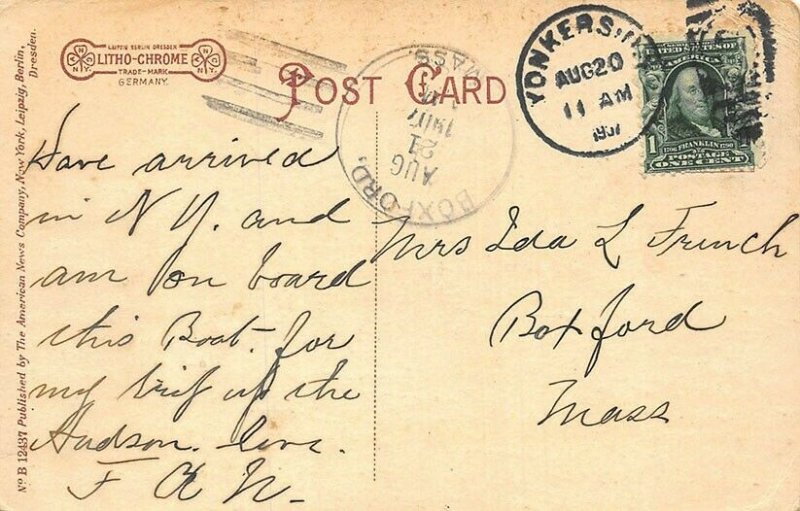 LEIPZIG BERLIN DRESDEN
LITHO-CHROME
TRADE-MARK
GERMANY.
POST CARD
YONKERS, N.
AUG 20
11 AM
1907
BOXFORD,
MASS.
AUG
21
1907
UNITED STATES OF
AMERICA
1706 FRANKLIN 1790
POSTAGE
1 ONE CENT
Nº B 12437 Published by The American News Company, New York, Leipzig, Berlin,
Dresden.
Have arrived
in N Y. and
am on board
this Boat. for
my trip up the
Hudson.
F
Mrs Ida L French
Boxford
Mass